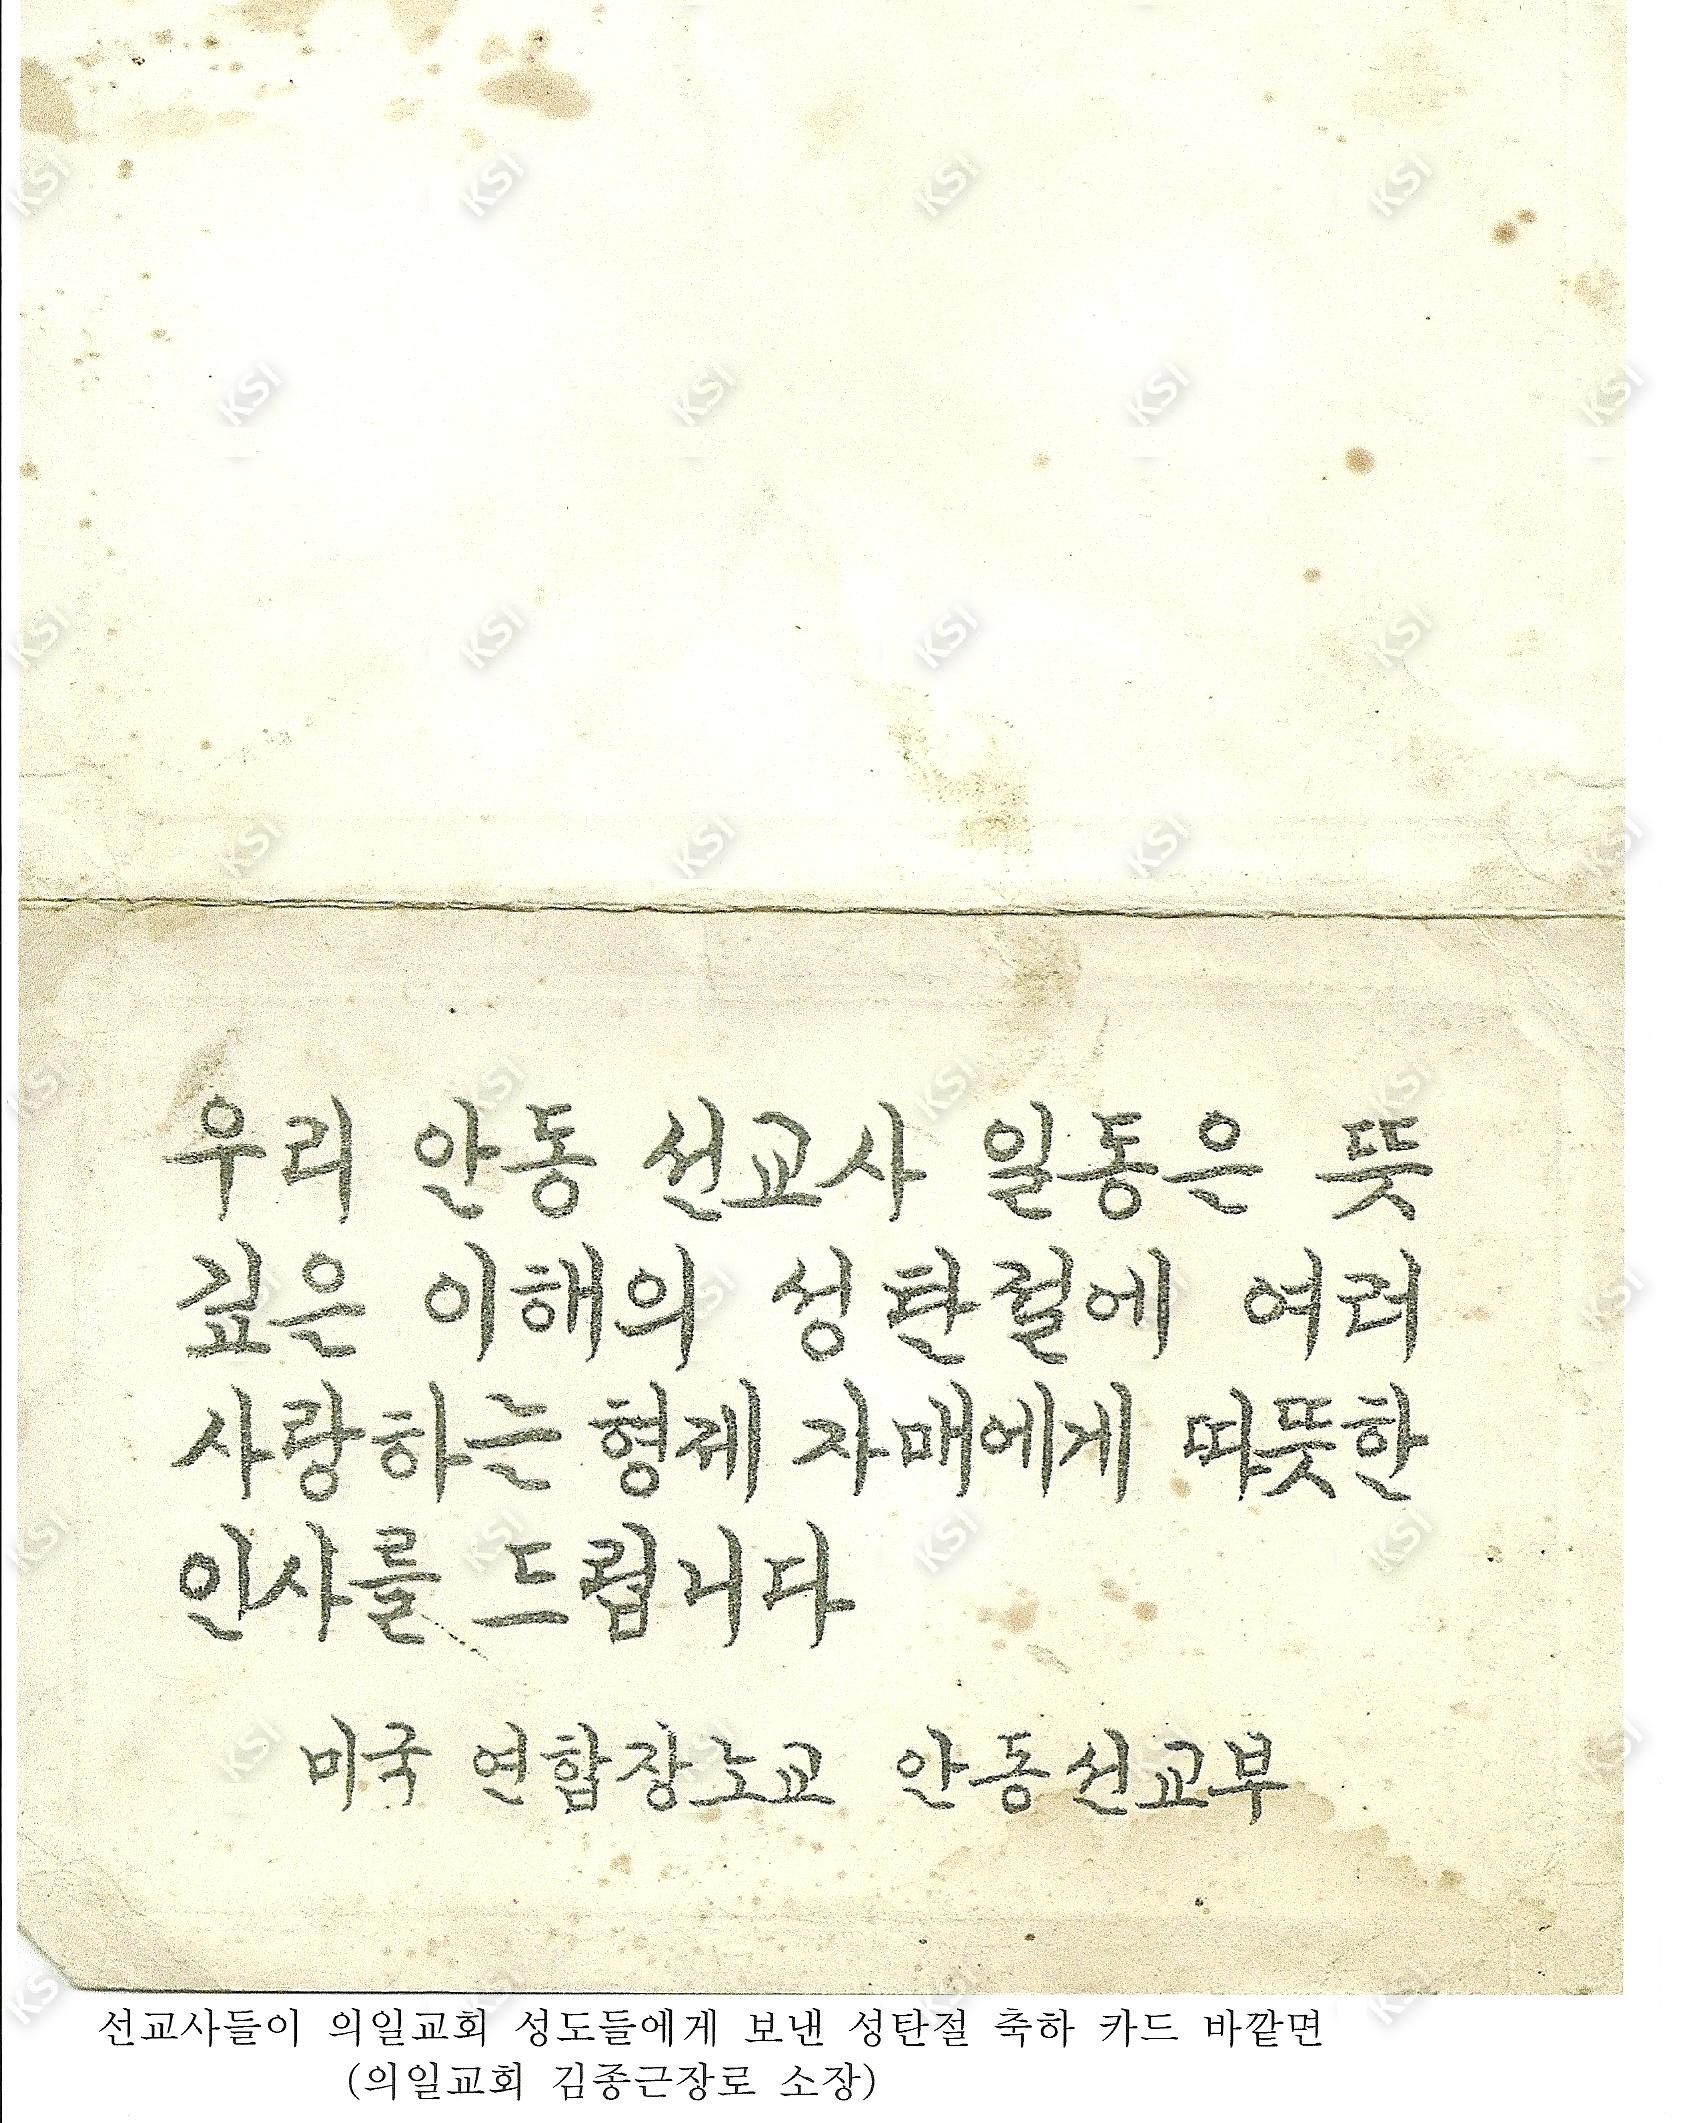 우리 안동 선교사 일동은 뜻
깊은 이해의 성탄절에 여러
사랑하는 형제 자매에게 따뜻한
인사를 드립니다
미국 연합장노교 안동선교부
선교사들이 의일교회 성도들에게 보낸 성탄절 축하 카드 바깥면
(의일교회 김종근장로 소장)